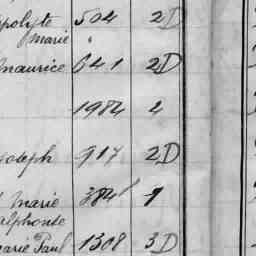 ppolyte 504 2D
Marie "
Maurice 641 2D
1984 4
Joseph 917 2D
Marie 384 1
Alphonse
Marie Paul 1308 3D